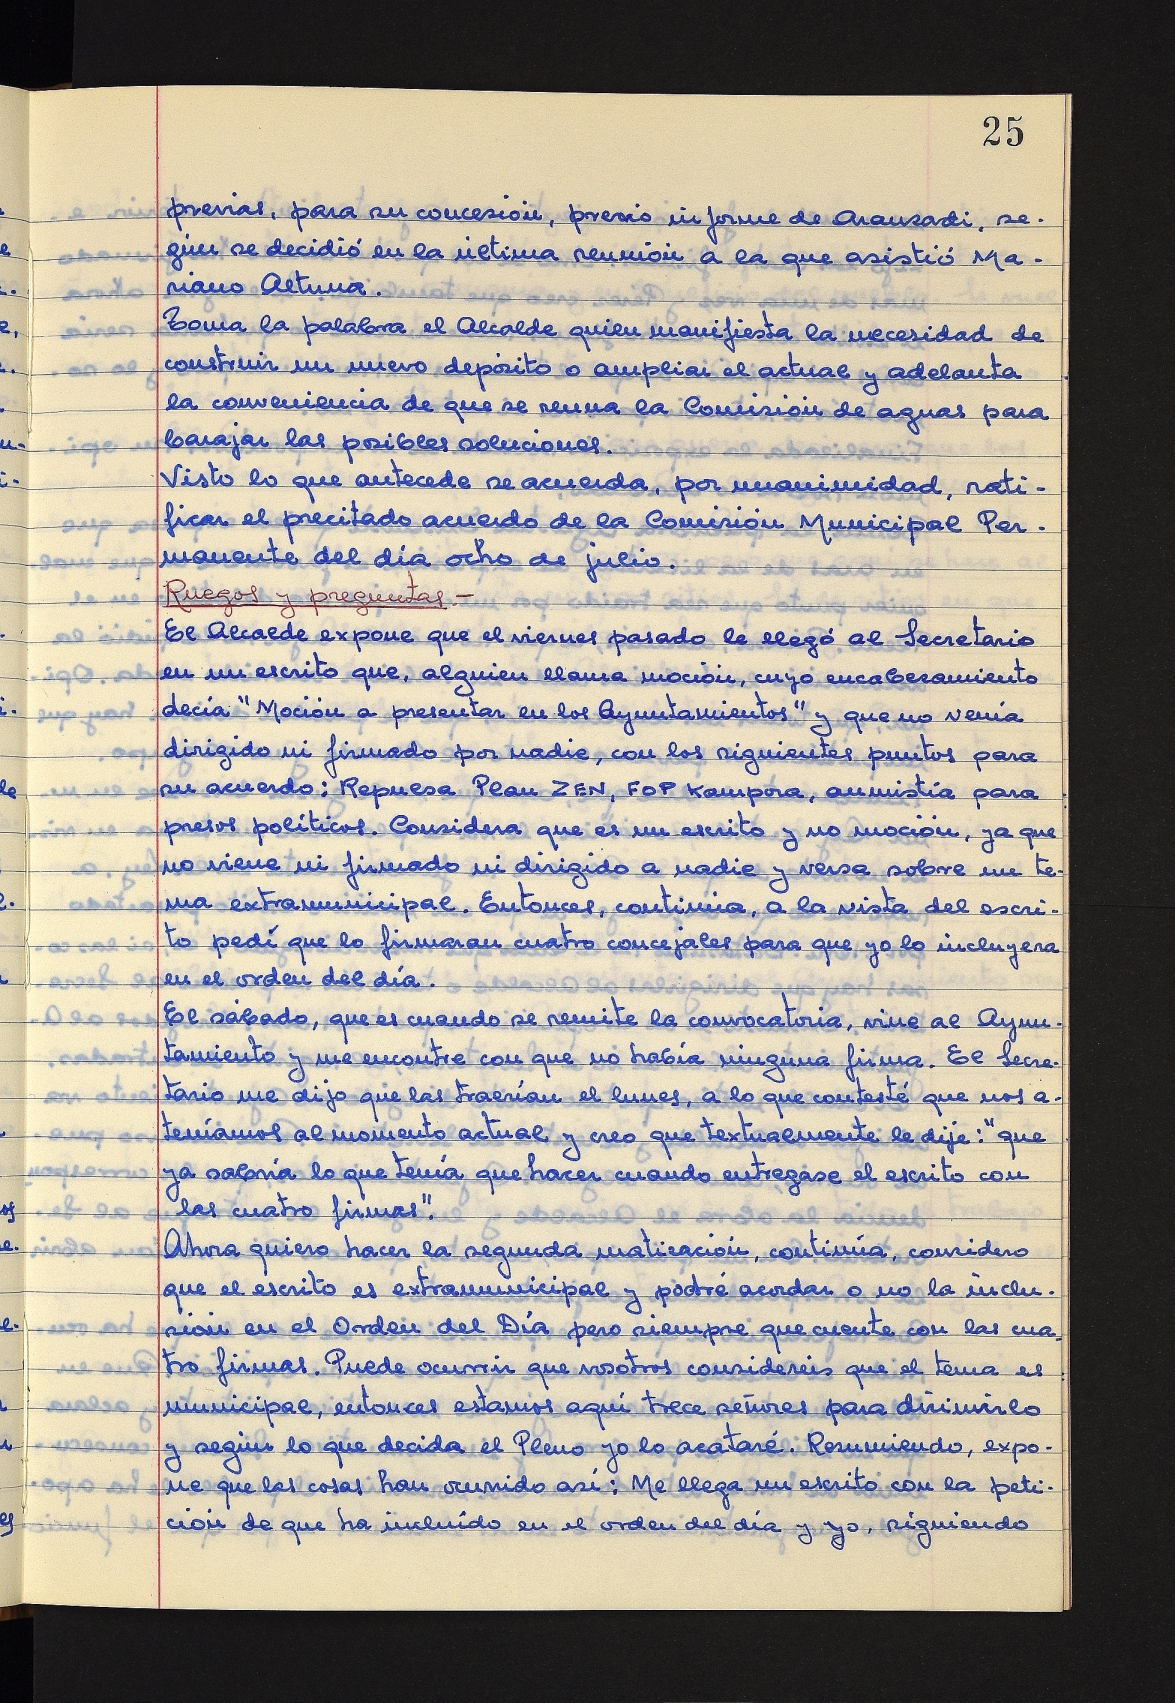 25
previas, para su concesión, previo informe de Aranzadi, se-
gún se decidió en la última reunión a la que asistió Ma-
riano Altuna.
Toma la palabra el Alcalde quien manifiesta la necesidad de
construir un nuevo depósito o ampliar el actual y adelanta
la conveniencia de que se reuna la Comisión de aguas para
barajar las posibles soluciones.
Visto lo que antecede se acuerda, por unanimidad, rati-
ficar el precitado acuerdo de la Comisión Municipal Per-
manente del día ocho de julio.
Ruegos y preguntas.-
El Alcalde expone que el viernes pasado le llegó al Secretario
en un escrito que, alguien llama moción, cuyo encabezamiento
decía "Moción a presentar en los Ayuntamientos" y que no venía
dirigido ni firmado por nadie, con los siguientes puntos para
su acuerdo: Repulsa Plan ZEN, FOP Kampora, amnistía para
presos políticos. Considera que es un escrito y no moción, ya que
no viene ni firmado ni dirigido a nadie y versa sobre un te-
ma extramunicipal. Entonces, continúa, a la vista del escri-
to pedí que lo firmaran cuatro concejales para que yo lo incluyera
en el orden del día.
El sábado, que es cuando se remite la convocatoria, vine al Ayun-
tamiento y me encontré con que no había ninguna firma. El Secre-
tario me dijo que las traerían el lunes, a lo que contesté que nos a-
teníamos al momento actual y creo que textualmente le dije: "que
ya sabría lo que tenía que hacer cuando entregase el escrito con
las cuatro firmas".
Ahora quiero hacer la segunda matización, continúa, considero
que el escrito es extramunicipal y podré acordar o no la inclu-
sión en el Orden del Día pero siempre que cuente con las cua-
tro firmas. Puede ocurrir que vosotros considereis que el tema es
municipal, entonces estamos aquí trece señores para dirimirlo
y según lo que decida el Pleno yo lo acataré. Resumiendo, expo-
ne que las cosas han ocurrido así: Me llega un escrito con la peti-
ción de que ha incluído en el orden del día y yo, siguiendo